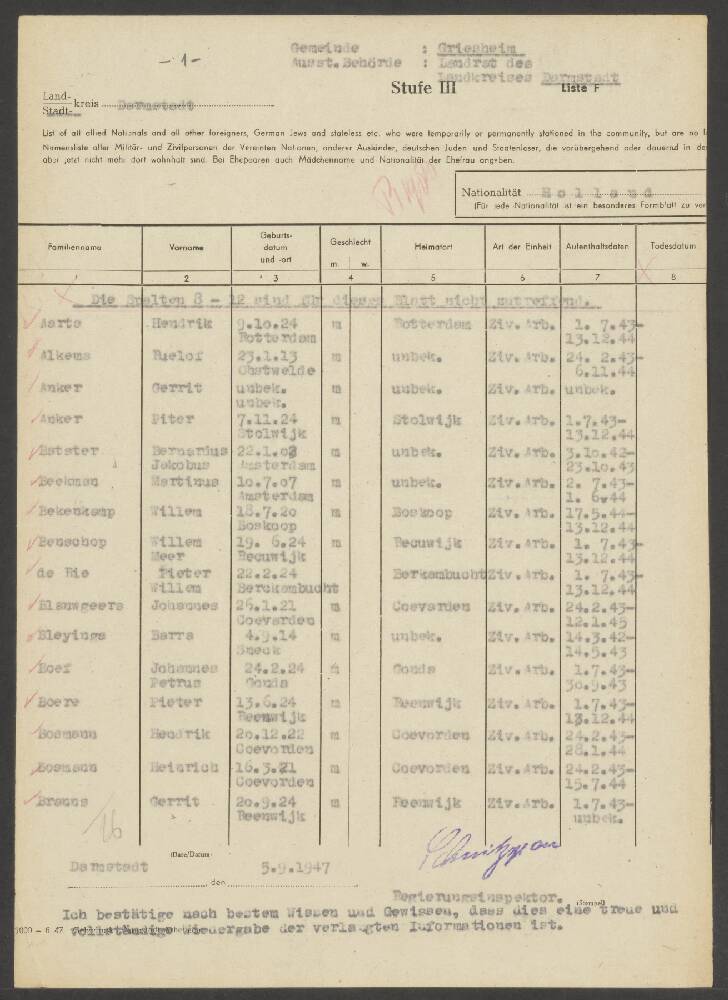 -1-
Gemeinde : Griesheim
Ausst. Behörde : Landrat des
Landkreises Darmstadt
Stufe III Liste F
Land-
Stadt- kreis Darmstadt
List of all allied Nationals and all other foreigners, German Jews and stateless etc. who were temporarily or permanently stationed in the community, but are no
Namensliste aller Militär- und Zivilpersonen der Vereinten Nationen, anderer Ausländer, deutschen Juden und Staatenloser, die vorübergehend oder dauernd in de
aber jetzt nicht mehr dort wohnhaft sind. Bei Ehepaaren auch Mädchenname und Nationalität der Ehefrau angeben.
Nationalität Holland
(Für jede Nationalität ist ein besonderes Formblatt zu ver
Familienname Vorname Geburts-datum und -ort Geschlecht m. w. Heimatort Art der Einheit Aufenthaltsdaten Todesdatum
1 2 3 4 5 6 7 8
Die Spalten 8 - 12 sind für dieses Blatt nicht zutreffend.
Aarts Hendrik 9.10.24 m Rotterdam Ziv. Arb. 1. 7.43-
Rotterdam 13.12.44
Alkema Roelof 23.1.13 m unbek. Ziv. Arb. 24. 2.43-
Obstwelde 6.11.44
Anker Gerrit unbek. m unbek. Ziv. Arb. unbek.
unbek.
Anker Piter 7.11.24 m Stolwijk Ziv. Arb. 1.7.43-
Stolwijk 13.12.44
Batster Bernardus 22.1.02 m unbek. Ziv. Arb. 3.10.42-
Jakobus Amsterdam 23.10.43
Beekman Martinus 10.7.07 m unbek. Ziv. Arb. 2. 7.43-
Amsterdam 1. 6.44
Bekenkamp Willem 18.7.20 m Boskoop Ziv. Arb. 17.5.44-
Boskoop 13.12.44
Benschop Willem 19. 6.24 m Reeuwijk Ziv. Arb. 1. 7.43-
Meer Reeuwijk 13.12.44
de Bie Pieter 22.2.24 Berkambucht Ziv. Arb. 1. 7.43-
Willem Berckambucht 13.12.44
Blauwgeers Johannes 26.1.21 m Coevarden Ziv. Arb. 24.2.43-
Coevarden 12.1.45
Bleyinga Barra 4.9.14 m unbek. Ziv. Arb. 14.3.42-
Sneek 14.5.43
Boef Johannes 24.2.24 m Gouda Ziv. Arb. 1.7.43-
Petrus Gouda 30.9.43
Boere Pieter 13.6.24 m Reeuwijk Ziv. Arb. 1.7.43-
Reeuwijk 13.12.44
Bosmann Hendrik 20.12.22 m Coevorden Ziv. Arb. 24.2.43-
Coevorden 28.1.44
Bosmann Heinrich 16.3.21 m Coevorden Ziv. Arb. 24.2.43-
Coevorden 15.7.44
Brauns Gerrit 20.9.24 m Reeuwijk Ziv. Arb. 1.7.43-
Reeuwijk unbek.
16
(Date/Datum)
Darmstadt den 5.9.1947
Regierungsinspektor.
(Stempel)
Ich bestätige nach bestem Wissen und Gewissen, dass dies eine treue und
vollständige Wiedergabe der verlangten Informationen ist.